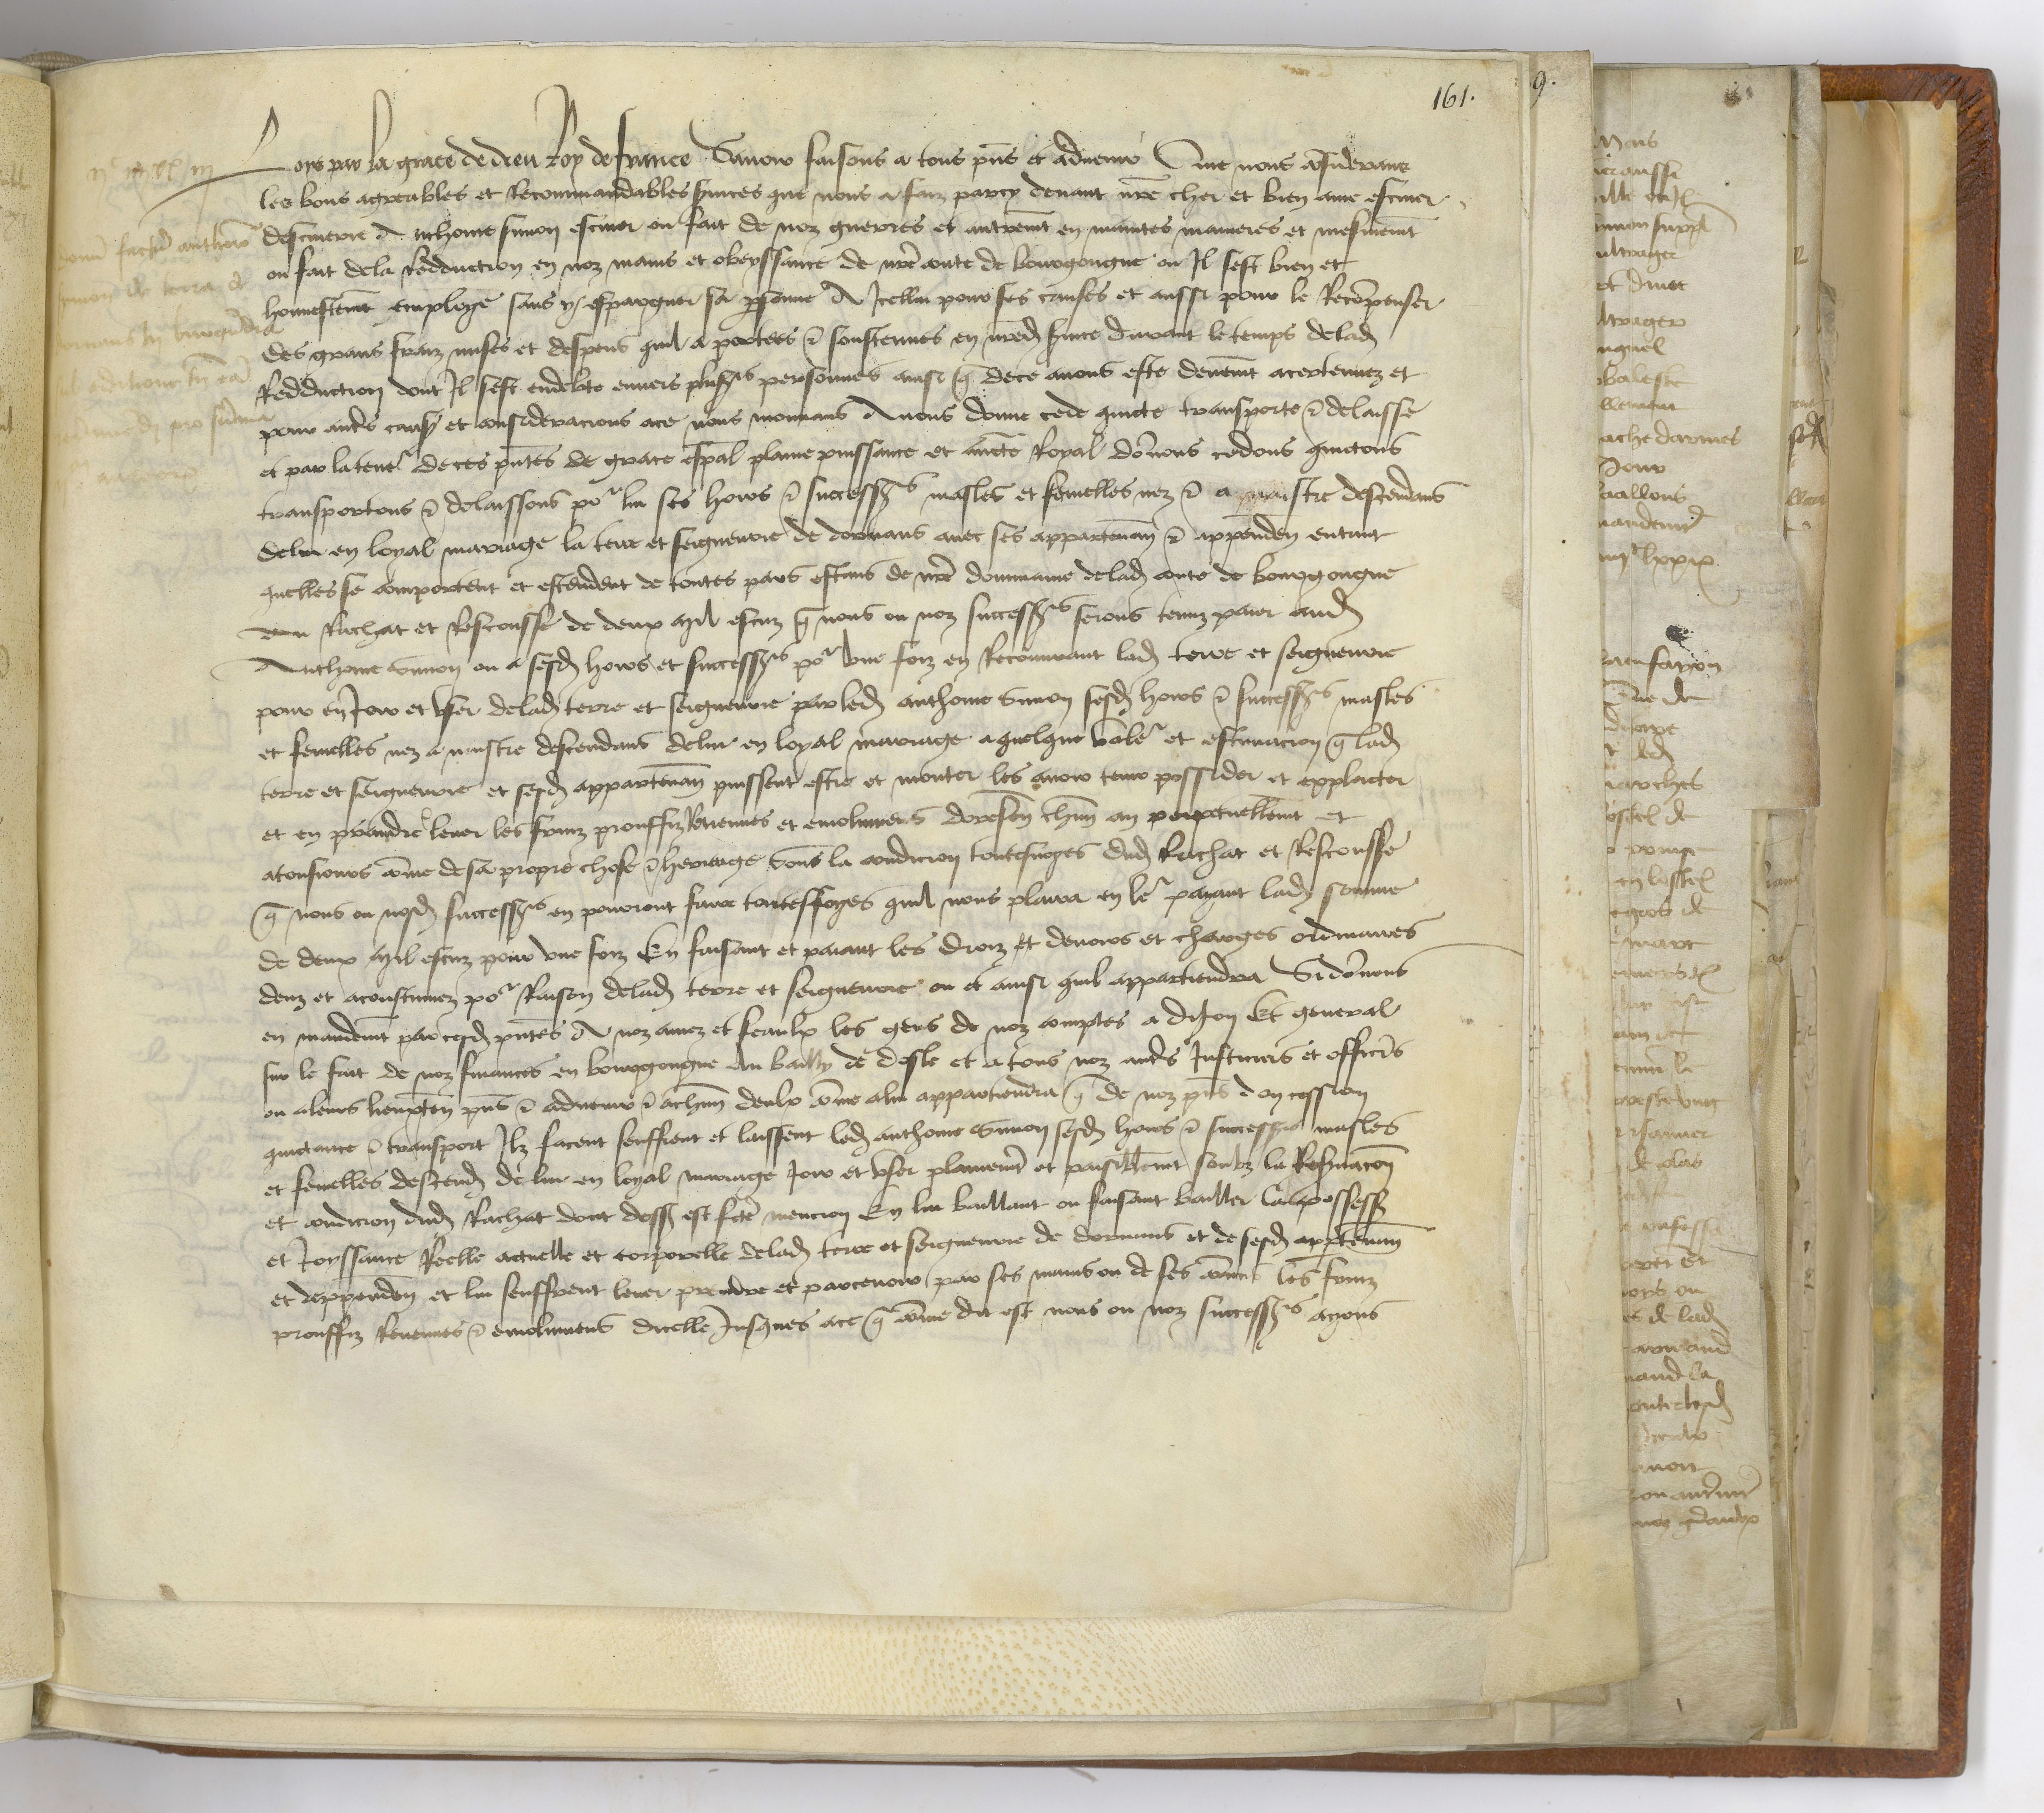 161.
Loys par la grace de dieu Roy de france Savoir faisons a tous pñs et advenir Que nous cõsiderans
les bons agreables et Recommandables svices que nous a faiz parcy devant nr̃e cher et bien ame escuier
descuierie Anthoine Simon escuier ou fait de noz guerres et autremt en maintes manieres et mesmemt
ou fait dela Redduction en noz mains et obeyssance de nr̃e conte de bourgongne ou Il sest bien et
honnestemt employe sans y espargner sa psonne A Icellui pour ses causes et aussi pour le Recõpenser
des grans fraiz mises et despens quil a portees & soustenues en nr̃ed svice durant le temps delad
Redduction dont Il sest endebte envers plusrs personnes ainsi q dece avons este deuemt acertennez et
pour autrs causs et consideracions ace nous mouvans Avons donne cede quicte transporte & delaisse
et par la tenr de ces pñtes de grace espal plaine puissance et aucte Royal dõnons cedons quictons
transportons & delaissons por lui ses hoirs & successrs masles et femelles nez & a naistre descendans
delui en loyal mariage la terre et seigneurie de dornans avec ses appartenan & appenden entant
quelles se comportent et estendent de toutes pars estans de nr̃e dommaine delad conte de bourgongne
Au Rachat et Rescousse de deux mil escuz q nous ou noz successrs serons tenuz paier aud
Anthoine Simon ou a sesd hoirs et successrs por une foiz en Recouvrant lad terre et seigneurie
pour en Joir et user delad terre et seigneurie par led anthoine Simon sesd hoirs & successrs masles
et femelles nez a naistre descendans delui en loyal mariage a quelque valr et estimacion q lad
terre et seigneurie et sesd appartenan puissent estre et monter les avoir tenir posseder et explecter
et en prandre & lever les fruiz prouffiz Revenues et emolumens doresen chun an perpetuellemt et
atousiours cõme de sa propre chose & heritage Soubs la condicion toutesvoyes dud Rachat et Rescousse
q nous ou nosd successrs en pourront faire toutesfoyes quil nous plaira en ler payant lad somme
de deux mil escuz pour une foiz En faisant et paiant les droiz et devoirs et charges ordinaires
deuz et acoustumez por Raison delad terre et seigneurie ou et ainsi quil appartiendra Si dõnons
en mandemt par cesd pñtes A noz amez et feaulx les gens de noz comptes a dijon Et general
sur le fait de noz finances en bourgongne Au bailly de dole et a tous noz autrs Justiciers et officrs
ou aleurs lieuxten pñs & advenir & achun deulx cõme alui appartiendra q de noz pñs don cession
quictance & transport Ilz facent seuffrent et laissent led anthoine Simon sesd hoirs & successrs masles
et femelles descend de lui en loyal mariage Joir et user plainemt et paisiblemt soubz la Resvacon
et condicion dud Rachat dont dess est fcte mencion En lui baillant ou faisant bailler la possess
et Joyssance Reelle actuelle et corporelle delad terre et seigneurie de dornans et de sesd apptenan
et appenden et lui seuffrent lever prendre et parcevoir par ses mains ou de ses cõmis les fruiz
prouffiz Revenues & emolumens dicelle Jusques ace q cõme dit est nous ou noz successrs ayons